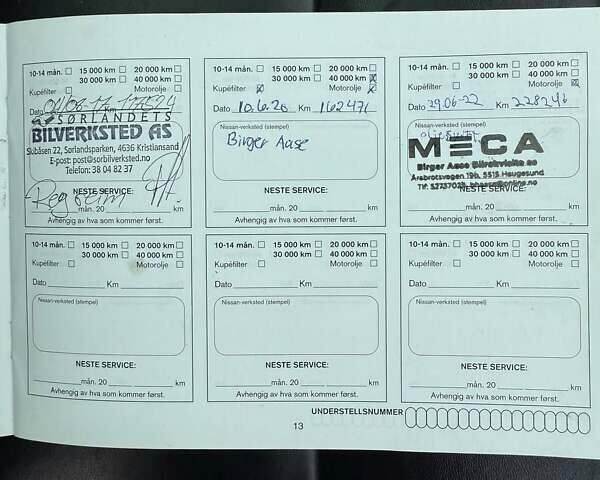 10-14 mån. 15 000 km 20 000 km
30 000 km 40 000 km
Kupéfilter Motorolje
Dato Km
SØRLANDETS
BILVERKSTED AS
Skibåsen 22, Sørlandsparken, 4636 Kristiansand
E-post: post@sorbilverksted.no
Telefon: 38 04 82 37
NESTE SERVICE:
mån. 20 km
Avhengig av hva som kommer først.
10-14 mån. 15 000 km 20 000 km
30 000 km 40 000 km
Kupéfilter Motorolje
Dato 10.6.20 Km 162471
Nissan-verksted (stempel)
Birger Aase
NESTE SERVICE:
mån. 20 km
Avhengig av hva som kommer først.
10-14 mån. 15 000 km 20 000 km
30 000 km 40 000 km
Kupéfilter Motorolje
Dato 29.06-22 Km 228246
Nissan-verksted (stempel)
MECA
Birger Aase Bilrekvisita as
Årabrotsvegen 19b, 5515 Haugesund
NESTE SERVICE:
mån. 20 km
Avhengig av hva som kommer først.
10-14 mån. 15 000 km 20 000 km
30 000 km 40 000 km
Kupéfilter Motorolje
Dato Km
Nissan-verksted (stempel)
NESTE SERVICE:
mån. 20 km
Avhengig av hva som kommer først.
10-14 mån. 15 000 km 20 000 km
30 000 km 40 000 km
Kupéfilter Motorolje
Dato Km
Nissan-verksted (stempel)
NESTE SERVICE:
mån. 20 km
Avhengig av hva som kommer først.
10-14 mån. 15 000 km 20 000 km
30 000 km 40 000 km
Kupéfilter Motorolje
Dato Km
Nissan-verksted (stempel)
NESTE SERVICE:
mån. 20 km
Avhengig av hva som kommer først.
UNDERSTELLSNUMMER
13